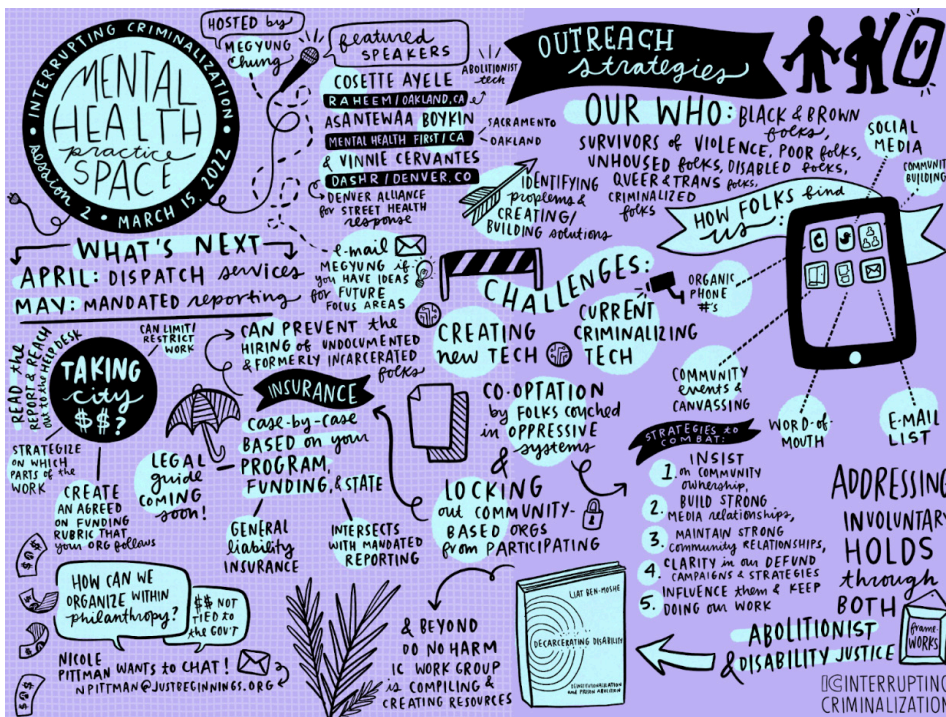 INTERRUPTING CRIMINALIZATION
MENTAL
HEALTH
practice
SPACE
session 2 • MARCH 15, 2022
HOSTED by
MEGYUNG
Chung
featured
SPEAKERS
COSETTE AYELE
ABOLITIONIST
tech
RAHEEM / OAKLAND, CA
ASANTEWAA BOYKIN
MENTAL HEALTH FIRST / CA
SACRAMENTO
OAKLAND
& VINNIE CERVANTES
DASHR / DENVER, CO
DENVER ALLIANCE
for STREET HEALTH
response
WHAT'S NEXT
APRIL: DISPATCH services
MAY: MANDATED reporting
e-mail
MEGYUNG if
you HAVE IDEAS
for FUTURE
FOCUS AREAS
OUTREACH
strategies
OUR WHO: BLACK & BROWN
folks,
SURVIVORS of VIOLENCE, POOR folks,
UNHOUSED folks, DISABLED folks,
QUEER & TRANS folks,
CRIMINALIZED
folks
IDENTIFYING
problems &
CREATING/
BUILDING solutions
HOW FOLKS find
US:
SOCIAL
MEDIA
COMMUNITY
BUILDING
ORGANIC
PHONE
#'s
COMMUNITY
events &
CANVASSING
WORD-of-
MOUTH
E-MAIL
LIST
CHALLENGES:
CREATING
new TECH
CURRENT
CRIMINALIZING
TECH
CO-OPTATION
by FOLKS couched
in OPPRESSIVE
systems
&
LOCKING
out COMMUNITY-
BASED ORGS
from PARTICIPATING
STRATEGIES to
COMBAT:
1. INSIST
on COMMUNITY
ownership,
2. BUILD STRONG
MEDIA relationships,
3. MAINTAIN STRONG
community RELATIONSHIPS,
4. CLARITY in our DEFUND
CAMPAIGNS & STRATEGIES
5. INFLUENCE them & KEEP
DOING our WORK
READ the
REPORT & REACH
out to the HELP DESK
TAKING
city
$$?
CAN LIMIT/
RESTRICT
WORK
STRATEGIZE
on WHICH
PARTS of the
WORK
CREATE
AN AGREED
ON FUNDING
RUBRIC THAT
your ORG follows
CAN PREVENT the
HIRING of UNDOCUMENTED
& FORMERLY INCARCERATED
folks
INSURANCE
CASE-by-CASE
BASED on your
PROGRAM,
FUNDING, & STATE
LEGAL
guide
COMING
soon!
GENERAL
liability
INSURANCE
INTERSECTS
WITH MANDATED
REPORTING
HOW CAN WE
ORGANIZE WITHIN
philanthropy?
$$ NOT
TIED to
the GOV'T
NICOLE
PITTMAN WANTS to CHAT!
NPITTMAN@JUSTBEGINNINGS.ORG
& BEYOND
DO NO HARM
IC WORK GROUP
is COMPILING &
CREATING RESOURCES
LIAT BEN-MOSHE
DECARCERATING DISABILITY
DEINSTITUTIONALIZATION and PRISON ABOLITION
ADDRESSING
INVOLUNTARY
HOLDS
through
BOTH
ABOLITIONIST
& DISABILITY JUSTICE
frame-
WORKS
IC INTERRUPTING
CRIMINALIZATION